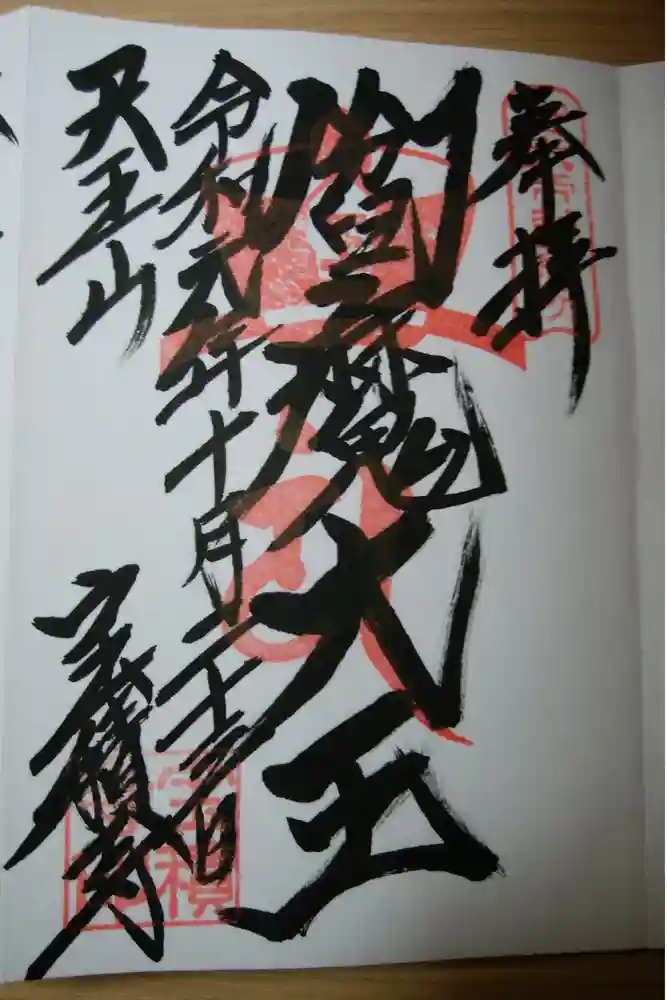 奉拝
閻魔大王
令和元年十月二十三日
天王山
宝積寺
宝積寺印